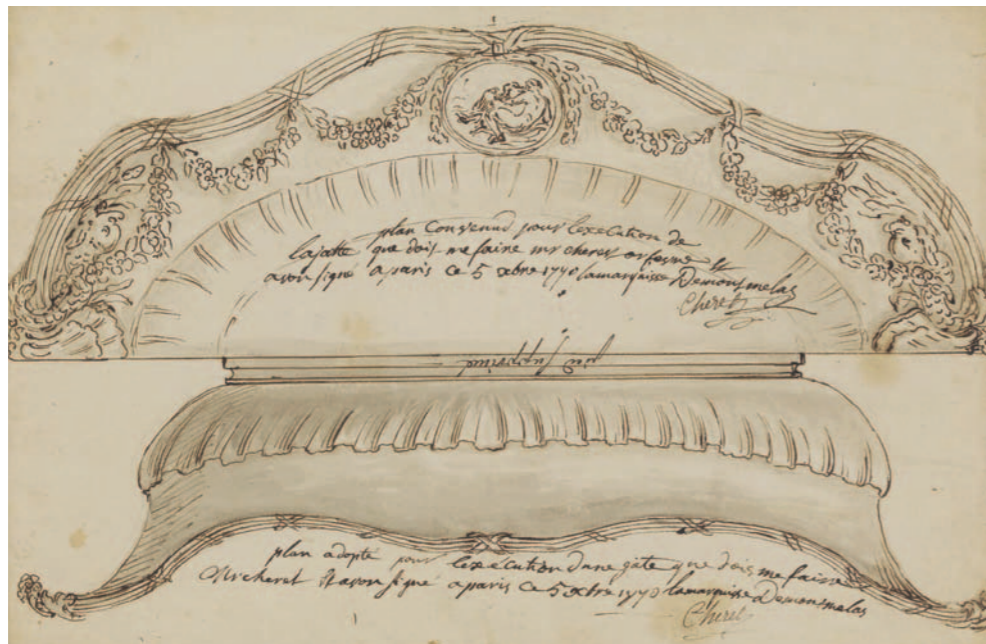 plan Convenud pour lexecution de
lajatte que dois me faire mr cheret orfevre et
avon signé a paris ce 5 xbre 1770 lamarquisse Demonsmelas
Cheret
plan adopté pour lexecution dune gâte que dois me faire
Mr cheret et avon signé a paris ce 5 xbre 1770 lamarquisse Demonsmelas
Cheret